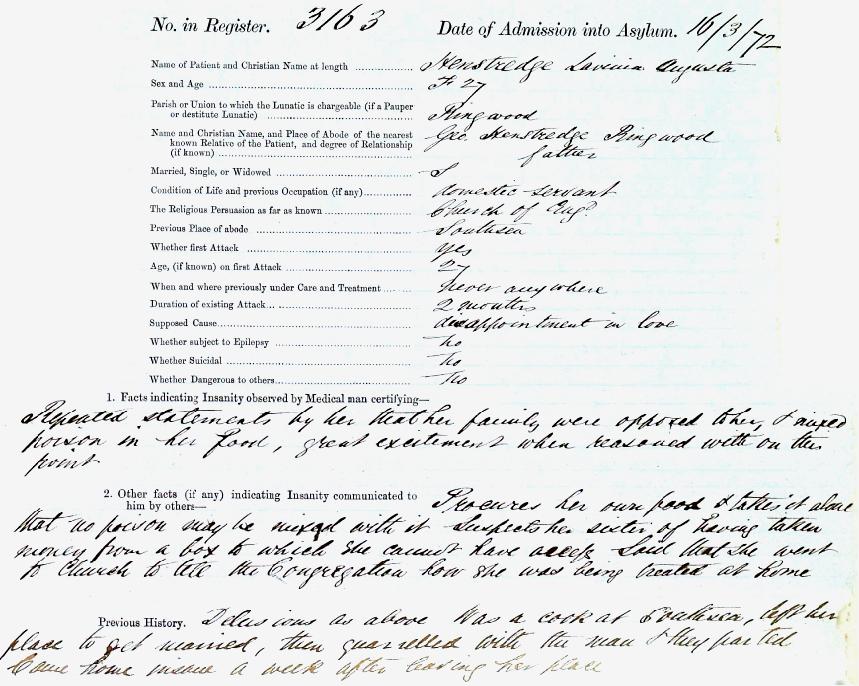 No. in Register. 3163 Date of Admission into Asylum. 16/3/72
Name of Patient and Christian Name at length Henstredge Lavinia Augusta
Sex and Age F 27
Parish or Union to which the Lunatic is chargeable (if a Pauper
or destitute Lunatic) Ringwood
Name and Christian Name, and Place of Abode of the nearest Geo. Henstredge Ringwood
known Relative of the Patient, and degree of Relationship
(if known) father
Married, Single, or Widowed S
Condition of Life and previous Occupation (if any) domestic servant
The Religious Persuasion as far as known Church of Engd
Previous Place of abode Southsea
Whether first Attack yes
Age, (if known) on first Attack 27
When and where previously under Care and Treatment never anywhere
Duration of existing Attack 2 months
Supposed Cause disappointment in love
Whether subject to Epilepsy no
Whether Suicidal no
Whether Dangerous to others no
1. Facts indicating Insanity observed by Medical man certifying—
Repeated statements by her that her family were opposed to her, & mixed
poison in her food, great excitement when reasoned with on this
point
2. Other facts (if any) indicating Insanity communicated to
him by others— Procures her own food & takes it alone
that no poison may be mixed with it Suspects her sister of having taken
money from a box to which she cannot have access Said that she went
to Church to tell the Congregation how she was being treated at home
Previous History. Delusions as above Was a cook at Southsea, left her
place to get married, then quarrelled with the man & they parted
Came home insane a week after leaving her place